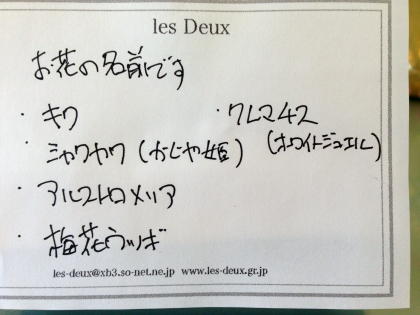 les Deux
お花の名前です
・キク
・シャクヤク(かじや姫)
・アルストロメリア
・梅花ウツギ
・クレマチス
(ホワイトジュエル)
les-deux@xb3.so-net.ne.jp www.les-deux.gr.jp